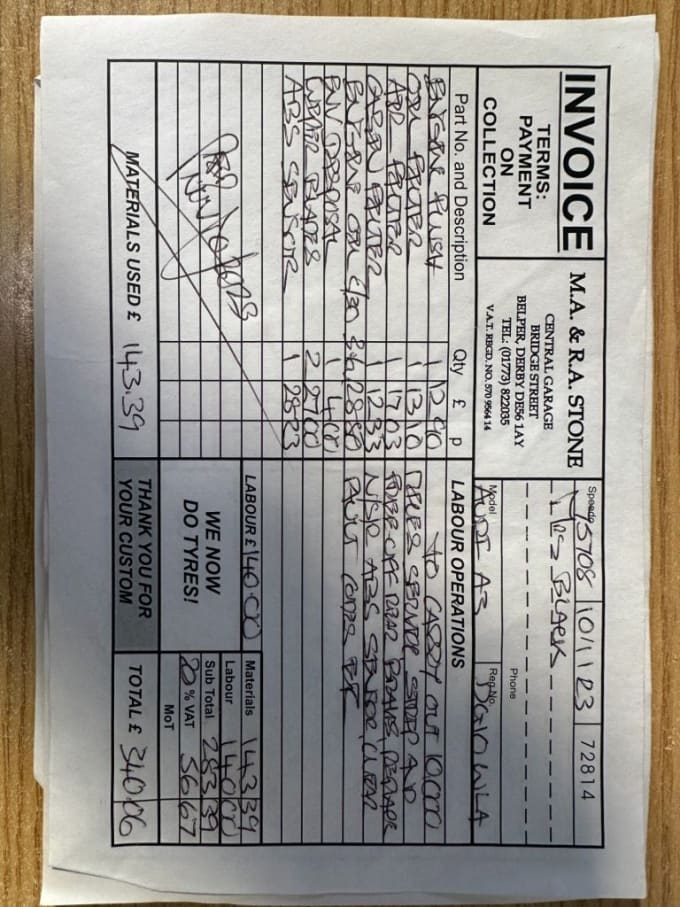 INVOICE
TERMS:
PAYMENT
ON
COLLECTION
M.A. & R.A. STONE
CENTRAL GARAGE
BRIDGE STREET
BELPER, DERBY DE56 1AY
TEL: (01773) 822035
V.A.T. REGD. NO. 570 9564 14
Speedo 45708 10/1/23 72814
Mrs BLACK
Phone
Model AUDI A3 Reg No. DG10WLA
Part No. and Description Qty £ p LABOUR OPERATIONS
ENGINE FLUSH 1 12 90 TO CARRY OUT 10,000
OIL FILTER 1 13 10 MILES SERVICE STRIP AND
AIR FILTER 1 17 03 REAR BRAKES
CABIN FILTER 1 12 33 N/S/R ABS SENSOR CLEAR
ENGINE OIL 5/30 28 80 FAULT CODES
ENV DISPOSAL 1 4 00
WIPER BLADES 2 27 00
ABS SENSOR 1 28 23
MATERIALS USED £ 143.39
LABOUR £ 140 00
WE NOW
DO TYRES!
THANK YOU FOR
YOUR CUSTOM
Materials 143 39
Labour 140 00
Sub Total 283 39
20 % VAT 56 67
MoT
TOTAL £ 340 06